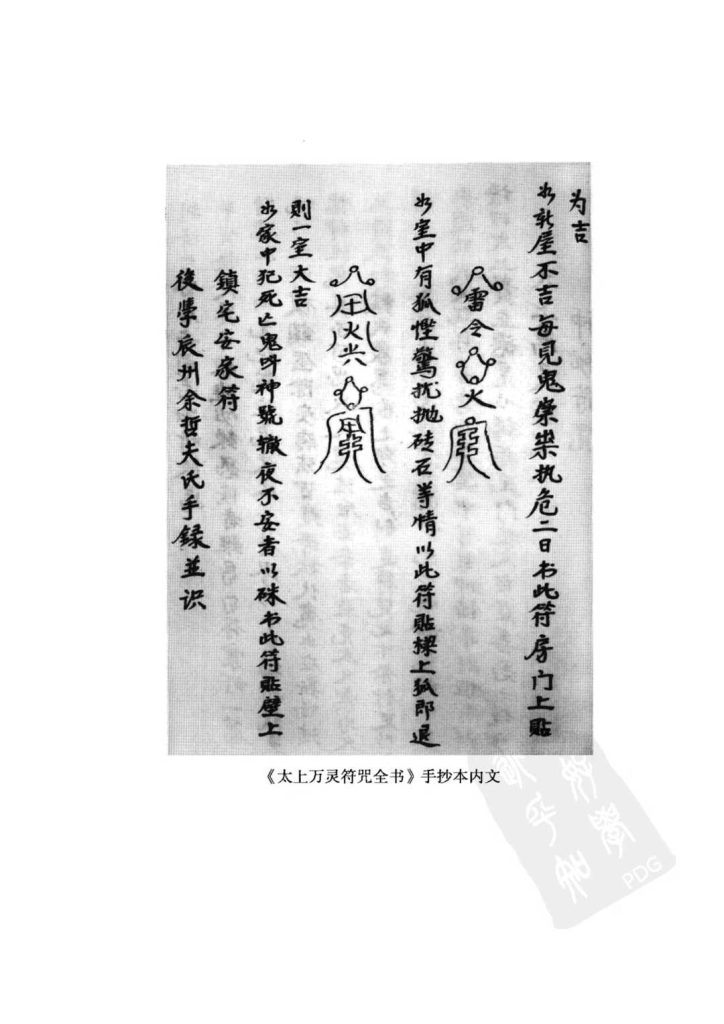 为吉
如新屋不吉每見鬼祟执危二日书此符房门上貼
雷令
火
如室中有狐怪驚扰抛砖石等情以此符貼樑上狐即退
田
火
則一室大吉
如家中犯死亡鬼呌神號徹夜不安者以硃书此符貼壁上
鎮宅安家符
後學辰州余哲夫氏手録並识
《太上万灵符咒全书》手抄本内文
PDG